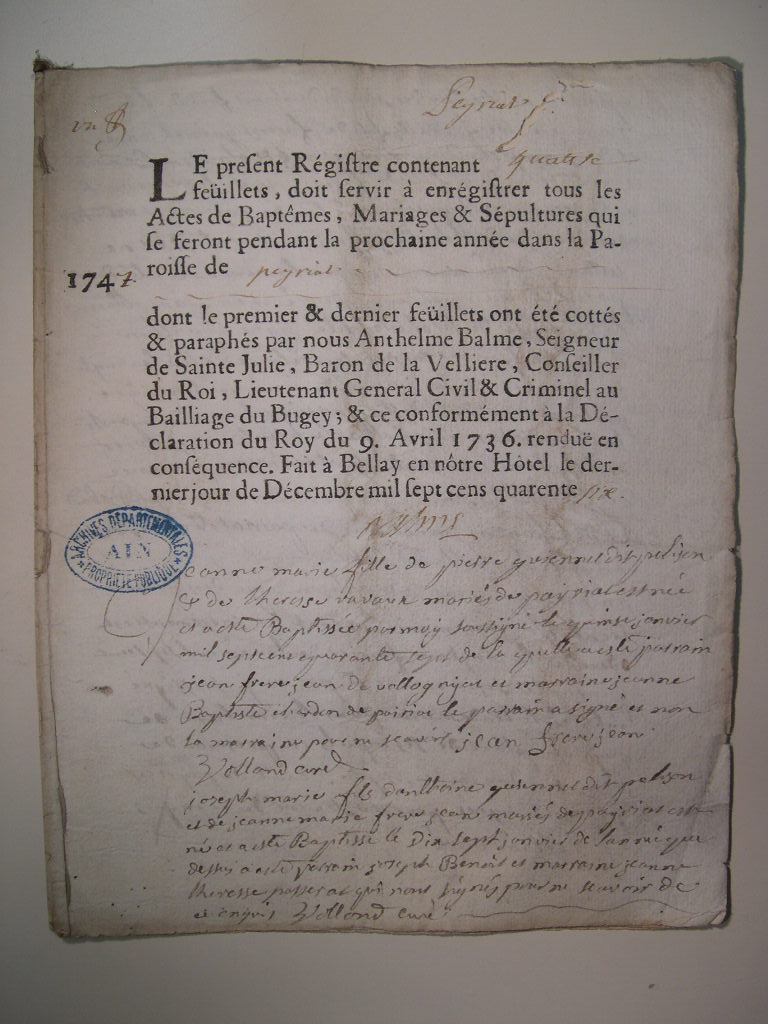 Peyriat
LE present Régistre contenant quatre
feüillets, doit servir à enrégistrer tous les
Actes de Baptêmes, Mariages & Sépultures qui
se feront pendant la prochaine année dans la Pa-
roisse de peyriat
1747
dont le premier & dernier feüillets ont été cottés
& paraphés par nous Anthelme Balme, Seigneur
de Sainte Julie, Baron de la Velliere, Conseiller
du Roi, Lieutenant General Civil & Criminel au
Bailliage du Bugey; & ce conformément à la Dé-
claration du Roy du 9. Avril 1736. renduë en
conséquence. Fait à Bellay en nôtre Hôtel le der-
nier jour de Décembre mil sept cens quarente six.
ARCHIVES DÉPARTEMENTALES
AIN
PROPRIÉTÉ PUBLIQUE
Jeanne marie fille de pierre dit
& de theresse mariés de payriat est née
et a esté Baptissée par moy soussigné le quinse janvier
mil sept cent quarante sept de la quelle a esté parrain
jean frere jean de et marraine jeanne
Baptiste de le parrain a signé et non
la marraine pour ne scavoir jean frere jean
Volland curé
joseph marie fils danthoine dit
et de jeanne marie frere jean mariés de payriat est
né et a esté Baptissé le Dix sept janvier de lanné que
dessus a esté parrain joseph Benoit et marraine jeanne
theresse qui nont signés pour ne scavoir de
ce enquis Volland curé